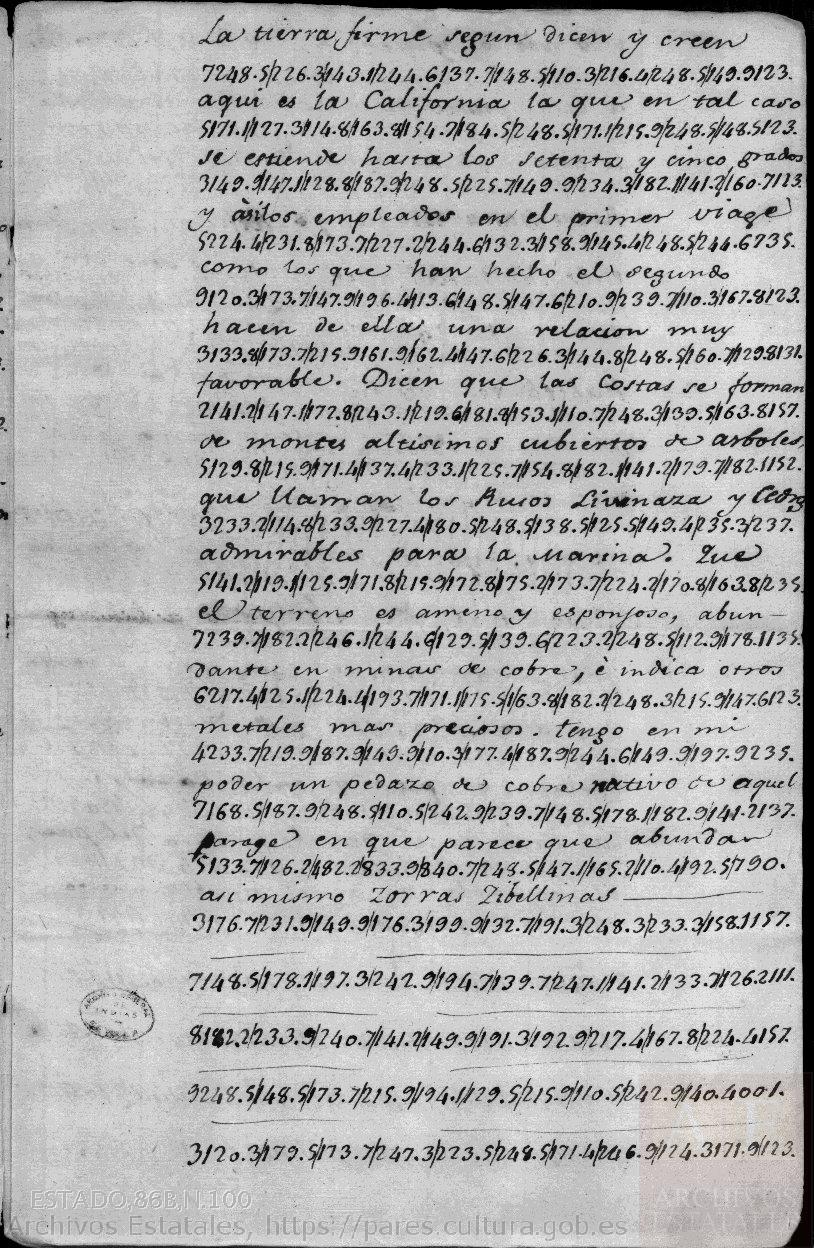 La tierra firme segun dicen y creen
7248.5/226.3/143.1/244.6137.7/148.5/110.3/216.4/248.5/149.9123.
aqui es la California la que en tal caso
5171.1/127.3/114.8/163.8/154.7/184.5/248.5/171.1/215.9/248.5/148.5123.
se estiende hasta los setenta y cinco grados
3149.9/147.1/128.8/187.9/248.5/225.7/149.9/234.3/182.1/141.2/160.7123
y àsilos empleados en el primer viage
5224.4/231.8/173.7/227.2/244.6/132.3/158.9/145.4/248.5/244.6735.
como los que han hecho el segundo
9120.3/173.7/147.9/196.4/113.6/148.5/147.6/210.9/239.7/110.3/167.8123.
hacen de ella una relacion muy
3133.8/173.7/215.9161.9/162.4/147.6/226.3/144.8/248.5/160.7/129.8131.
favorable. Dicen que las Costas se forman
2141.2/147.1/172.8/243.1/219.6/181.8/153.1/110.7/248.3/139.5/163.8157.
de montes altisimos cubiertos de arboles,
5129.8/215.9/171.4/137.4/233.1/225.7/154.8/182.1/141.2/179.7/182.1152.
que llaman los Rusos Livinaza y Cedro
3233.2/114.8/233.9/227.4/180.5/248.5/138.5/125.5/149.4/235.3/237.
admirables para la Marina. Que
5141.2/119.1/125.9/171.8/215.9/172.8/175.2/173.7/224.2/170.8/163.8/235.
el terreno es ameno y esponjoso, abun-
7239.7/182.2/246.1/244.6/129.5/139.6/223.2/248.5/112.9/178.1135.
dante en minas de cobre, è indica otros
6217.4/125.1/224.4/193.7/171.1/175.5/163.8/182.2/248.3/215.9/147.6123.
metales mas preciosos. tengo en mi
4233.7/219.9/187.9/149.9/110.3/177.4/187.9/244.6/149.9/197.9235.
poder un pedazo de cobre nativo de aquel
7168.5/187.9/248.5/110.5/242.9/239.7/148.5/178.1/182.9/141.2137.
parage en que parece que abundan
5133.7/126.2/482.2/833.9/840.7/248.5/147.1/165.2/110.4/192.5/790.
asi mismo Zorras Zibellinas
3176.7/231.9/149.9/176.3/199.9/132.7/191.3/248.3/233.3/158.1157.
7148.5/178.1/197.3/242.9/194.7/139.7/247.1/141.2/133.7/126.2111.
8182.2/233.9/240.7/141.2/149.9/191.3/192.9/217.4/167.8/224.4157.
9248.5/148.5/173.7/215.9/194.1/129.5/215.9/110.5/242.9/140.4001.
3120.3/179.5/173.7/247.3/223.5/248.5/171.4/246.9/124.3171.9/123.
ARCHIVO GENERAL DE INDIAS
ESTADO,86B,N.100
Archivos Estatales, https://pares.cultura.gob.es
ARCHIVOS ESTATALES